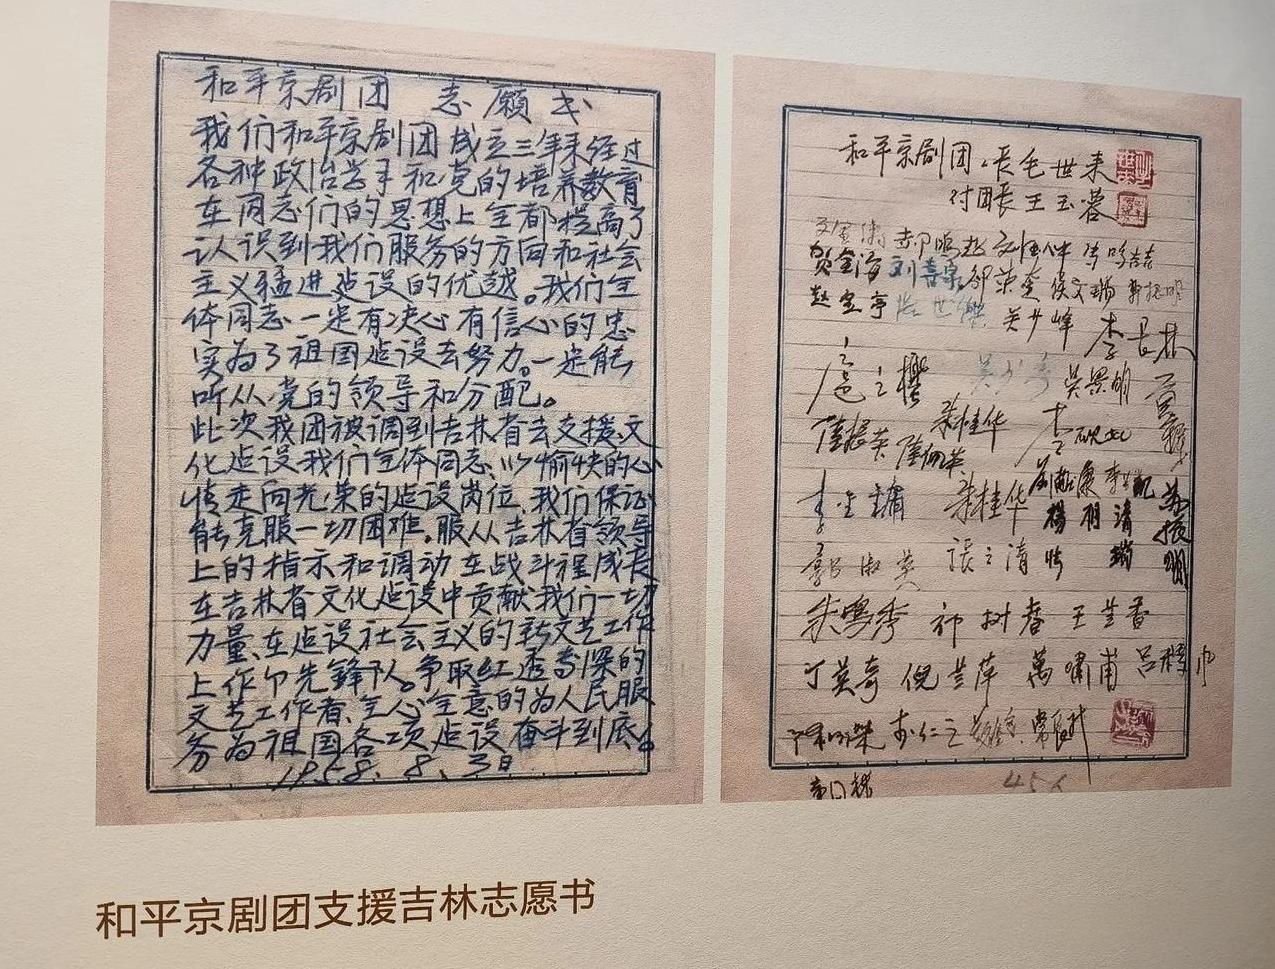 和平京剧团 志愿书
我们和平京剧团成立三年来经过
各种政治学习和党的培养教育
在同志们的思想上全都提高了
认识到我们服务的方向和社会
主义猛进建设的优越。我们全
体同志一定有决心有信心的忠
实为了祖国建设去努力。一定能
听从党的领导和分配。
此次我团被调到吉林省去支援文
化建设我们全体同志、以愉快的心
情走向光荣的建设岗位、我们保证
能克服一切困难。服从吉林省领导
上的指示和调动在战斗程成长
在吉林省文化建设中贡献我们一切
力量、在建设社会主义的新文艺工作
上作个先锋队。争取红透专深的
文艺工作者、全心全意的为人民服
务为祖国各项建设奋斗到底。
1958.8.3日
和平京剧团 长毛世来
付团长王玉蓉
贺金海 刘喜荣 侯文瑞
赵宝亭 关少峰 李长林
吴景明
朱桂华 李砚
李金镛 朱桂华
郭淑英 張之清
朱鸣秀 祁树春 王兰香
丁英奇 倪兰萍 萬啸甫
和平京剧团支援吉林志愿书